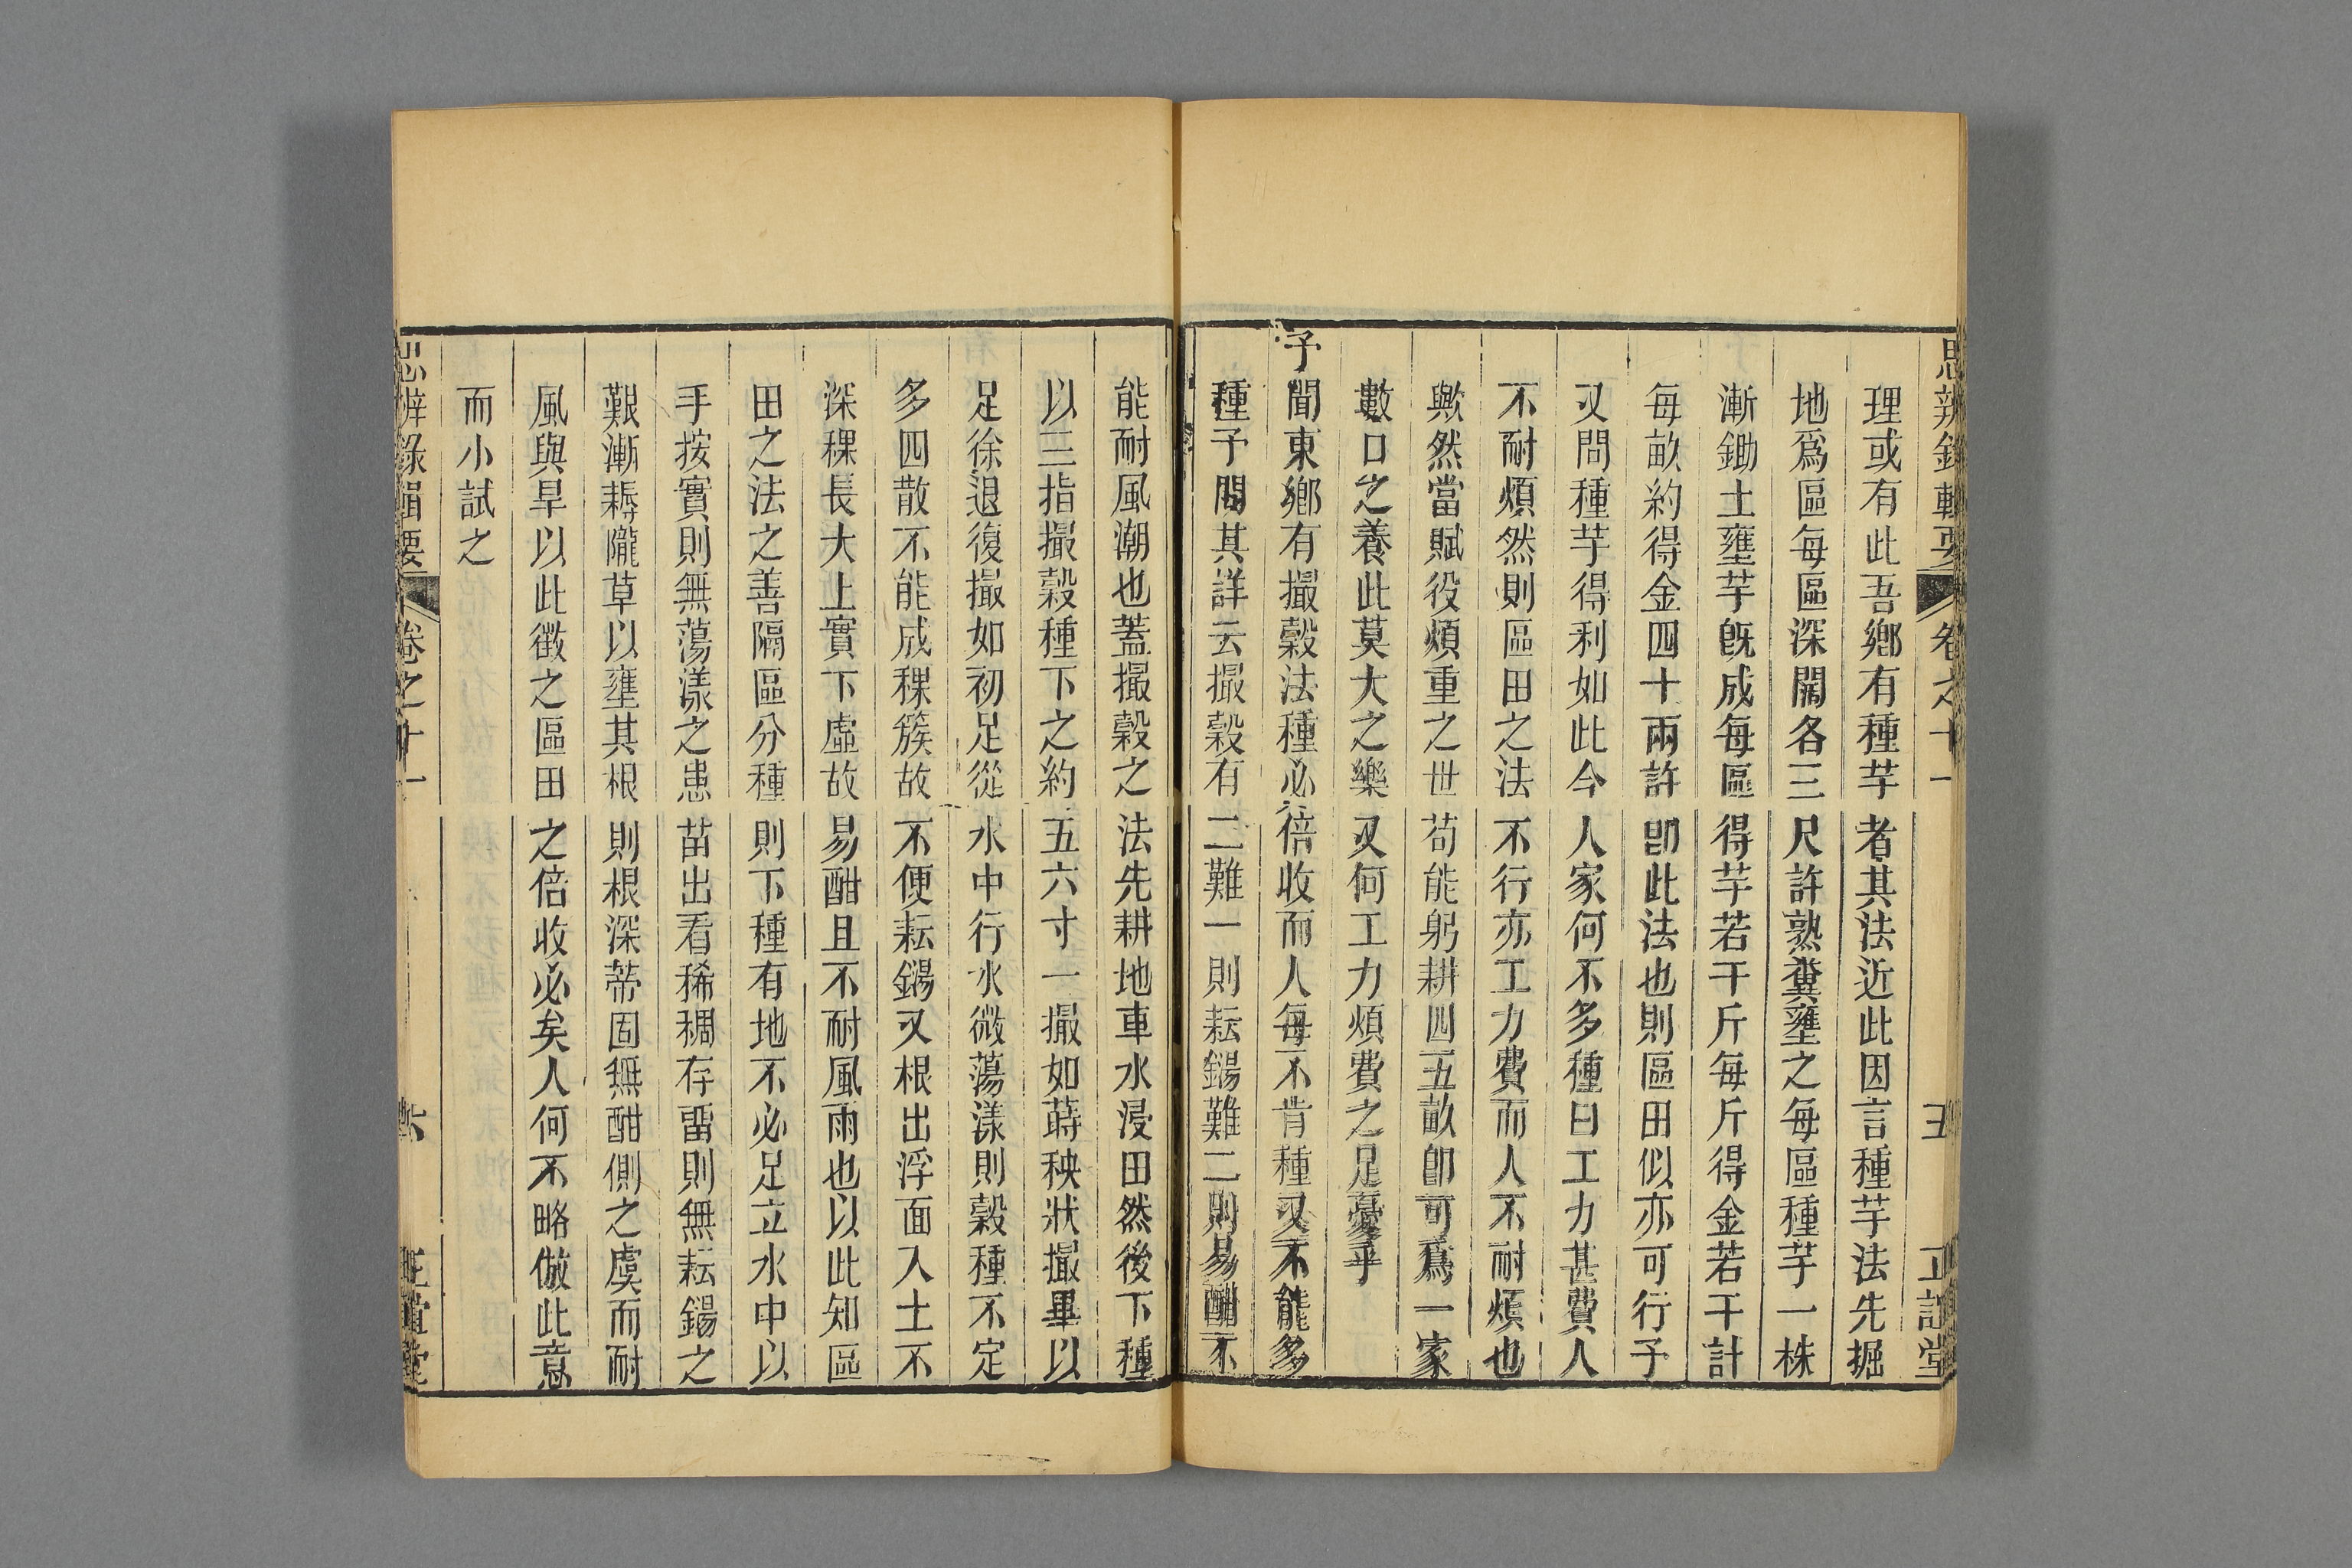 思辨錄輯要 卷之十一 五 正誼堂
理或有此吾鄉有種芋者其法近此因言種芋法先掘
地爲區每區深闊各三尺許熟糞壅之每區種芋一株
漸鋤土壅芋旣成每區得芋若干斤每斤得金若干計
每畝約得金四十兩許卽此法也則區田似亦可行子
又問種芋得利如此今人家何不多種曰工力甚費人
不耐煩然則區田之法不行亦工力費而人不耐煩也
歟然當賦役煩重之世苟能躬耕四五畝卽可爲一家
數口之養此莫大之樂又何工力煩費之足憂乎
予聞東鄉有撮穀法種必倍收而人每不肯種又不能多
種予問其詳云撮穀有二難一則耘鍚難二則易酣不
能耐風潮也蓋撮穀之法先耕地車水浸田然後下種
以三指撮穀種下之約五六寸一撮如蒔秧狀撮畢以
足徐退復撮如初足從水中行水微蕩漾則穀種不定
多四散不能成稞簇故不便耘鍚又根出浮面入土不
深稞長大上實下虛故易酣且不耐風雨也以此知區
田之法之善隔區分種則下種有地不必足立水中以
手按實則無蕩漾之患苗出看稀稠存留則無耘鍚之
艱漸耨隴草以壅其根則根深蒂固無酣側之虞而耐
風與旱以此徵之區田之倍收必矣人何不略倣此意
而小試之
思辨錄輯要 卷之十一 六 正誼堂